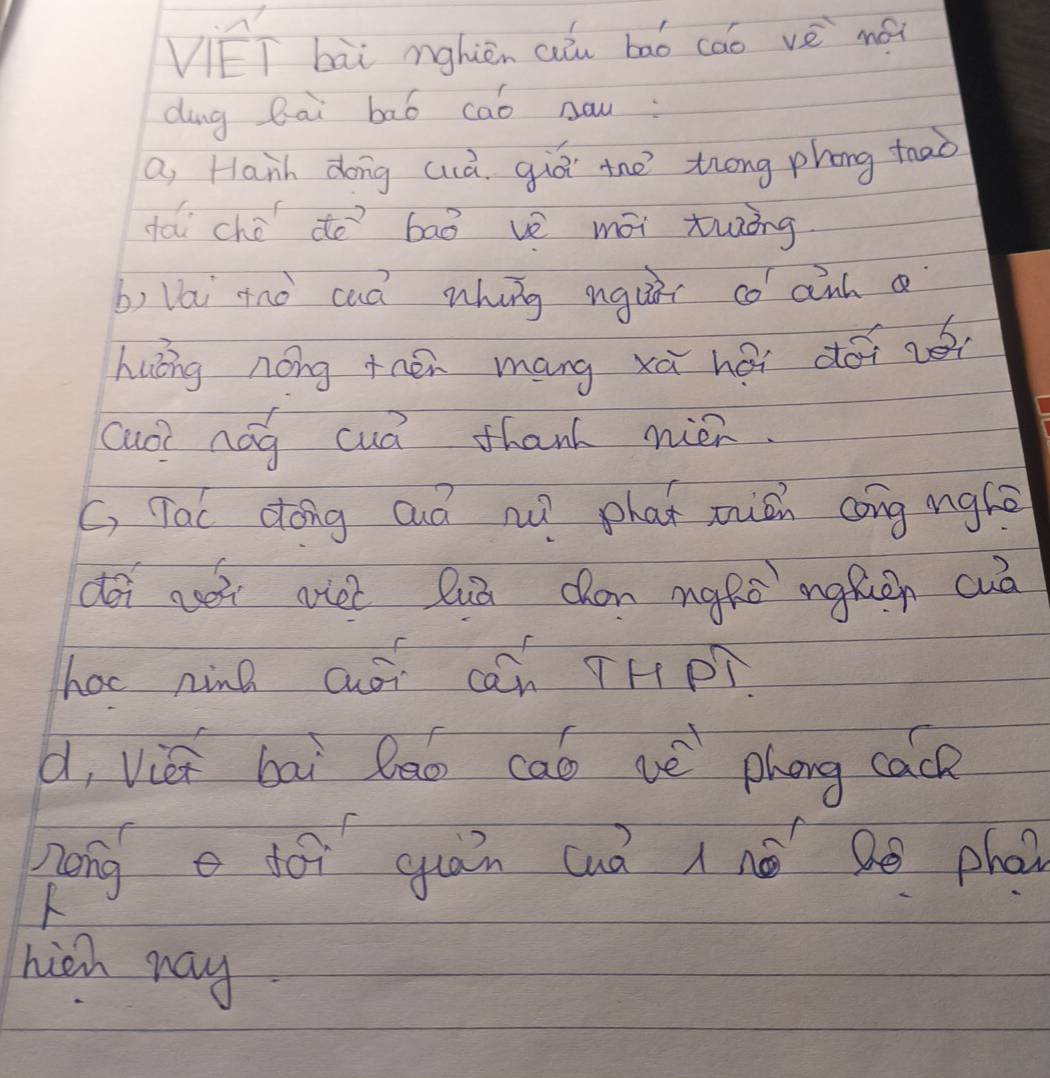 VIẾT bài nghiên cứu báo cáo về nội
dung bài báo cáo sau :
a, Hành động của giới trẻ trong phong trào
tái chế để bảo vệ môi trường
b) Vai trò của những người có ảnh
hưởng rộng trên mạng xã hội đối với
cuộc sống của thanh niên.
C, Tác động của sự phát triển công nghệ
đối với việc lựa chọn nghề nghiệp của
học sinh cuối cấp THPT.
d, Viết bài báo cáo về phong cách
sống tối giản của 1 số bộ phận
hiện nay.